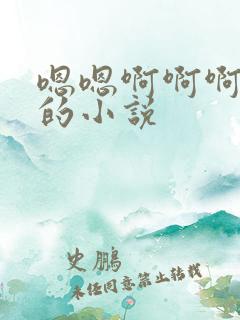 嗯嗯啊啊啊
的小说
史鹏
未经同意禁止转载